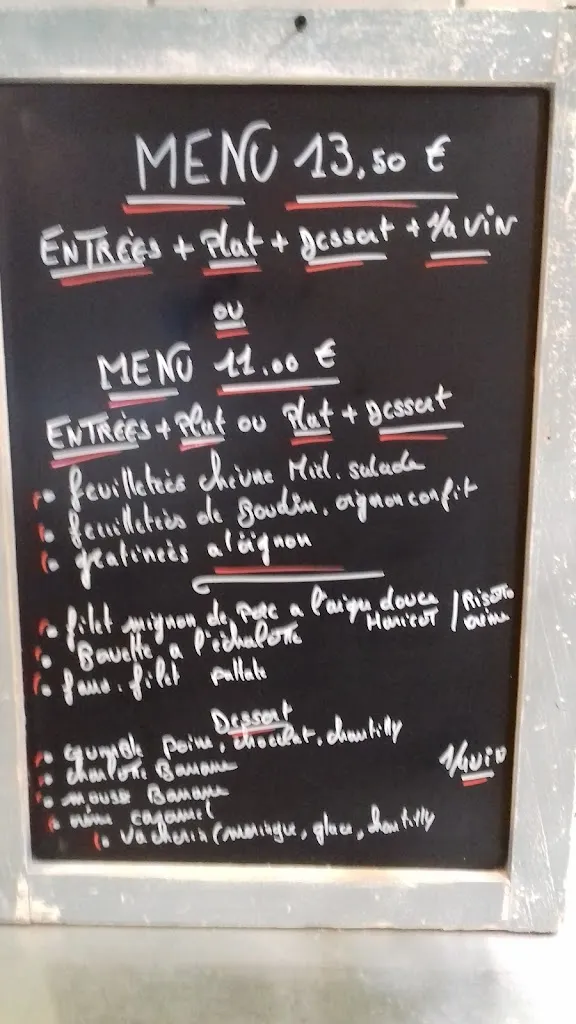 MENU 13,50 €
ENTRÉES + Plat + Dessert + 1/4 VIN
OU
MENU 11.00 €
ENTRÉES + Plat OU Plat + Dessert
feuilletées chèvre Miel, salade
feuilletées de Boudin, oignon confit
gratinées a l'oignon
filet mignon de porc a l'aigu douce Haricot / Risotto
Bavette a l'échalotte
faux. filet
Dessert
poire, chocolat, chantilly
charlotte Banane
1/4 vin
mousse Banane
crème caramel
vacherin (meringue, glace, chantilly